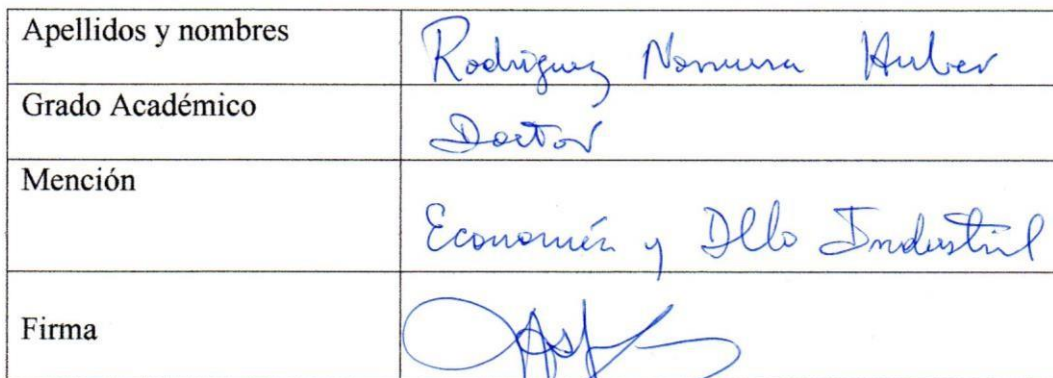 Apellidos y nombres Rodriguez Nomura Huber
Grado Académico Doctor
Mención Economía y Dllo Industrial
Firma